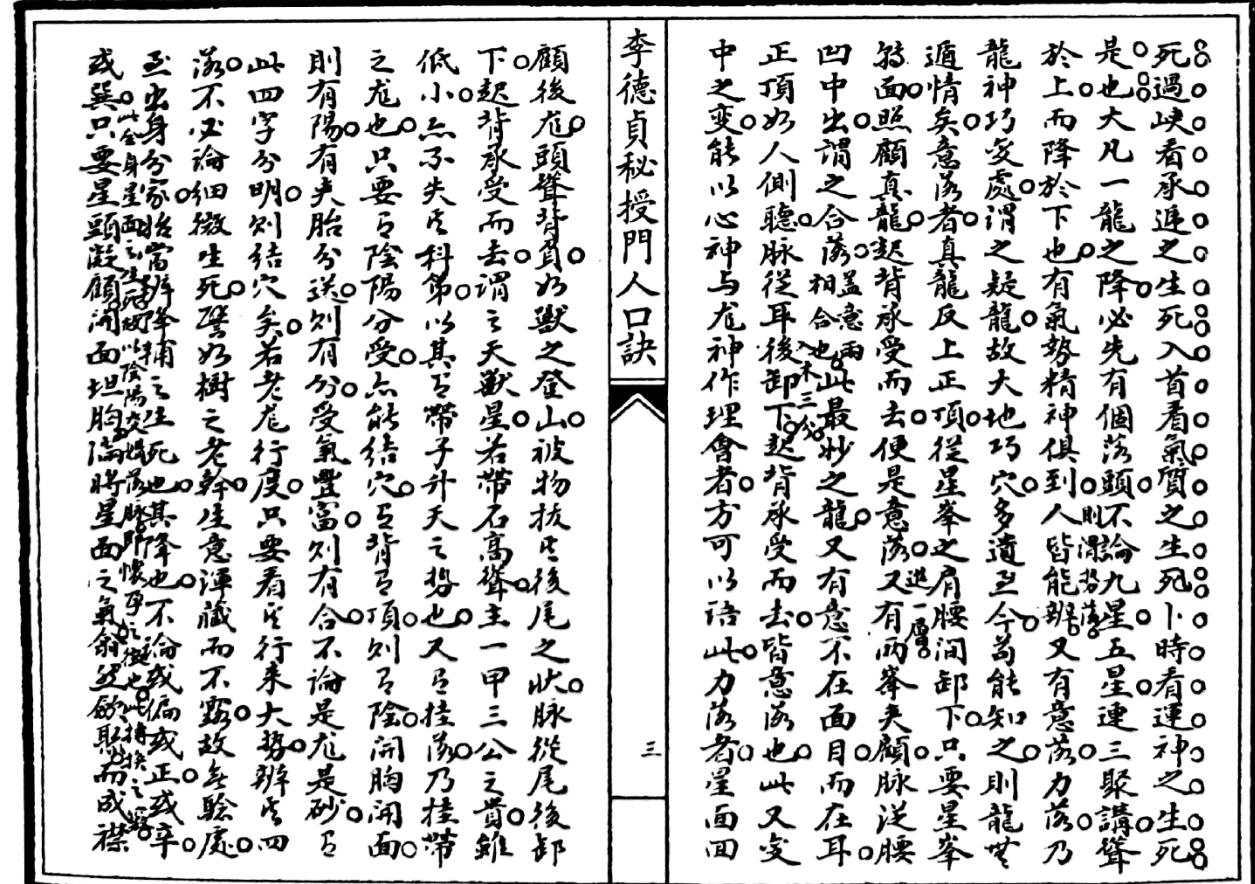 死過峡看承逓之生死入首看氣質之生死卜時看運神之生死
是也大凡一龍之降必先有個落頭不論九星五星連三聚講聳
於上而降於下也有氣勢精神俱到人皆能辨則谓势落又有意落力落乃
龍神巧变處谓之疑龍故大地巧穴多遺至今苟能知之則龍無
遁情矣意落者真龍反上正頂從星峯之肩腰间卸下只要星峯
转面照顧真龍起背承受而去便是意落進一層又有两峯夹顧脉従腰
凹中出谓之合落盖意两相合也此最妙之龍又有意不在面目而在耳
正頂如人側聽脉従耳後卸下入木三分起背承受而去皆意落也此又变
中之变能以心神与龙神作理會者方可以语此力落者星面回
李德貞秘授門人口訣
三
顧後龙頭聳背負如獸之登山被物拔其後尾之状脉從尾後卸
下起背承受而去谓之天獸星若带石高聳主一甲三公之贵雖
低小亦不失其科第以其有带子升天之势也又有挂落乃挂带
之龙也只要有陰陽分受亦能结穴有背有頂则有陰開胸開面
則有陽有夹胎分送则有分受氣豐富则有合不論是龙是砂有
此四字分明则结穴矣若老龙行度只要看其行来大势辨其四
落不必論细微生死譬如樹之老幹生意渾藏而不露故無驗處
至出身分家始當辨降輔之生死也其降也不論或偏或正或卒
或巽只要星頭凝顧開面坦胸